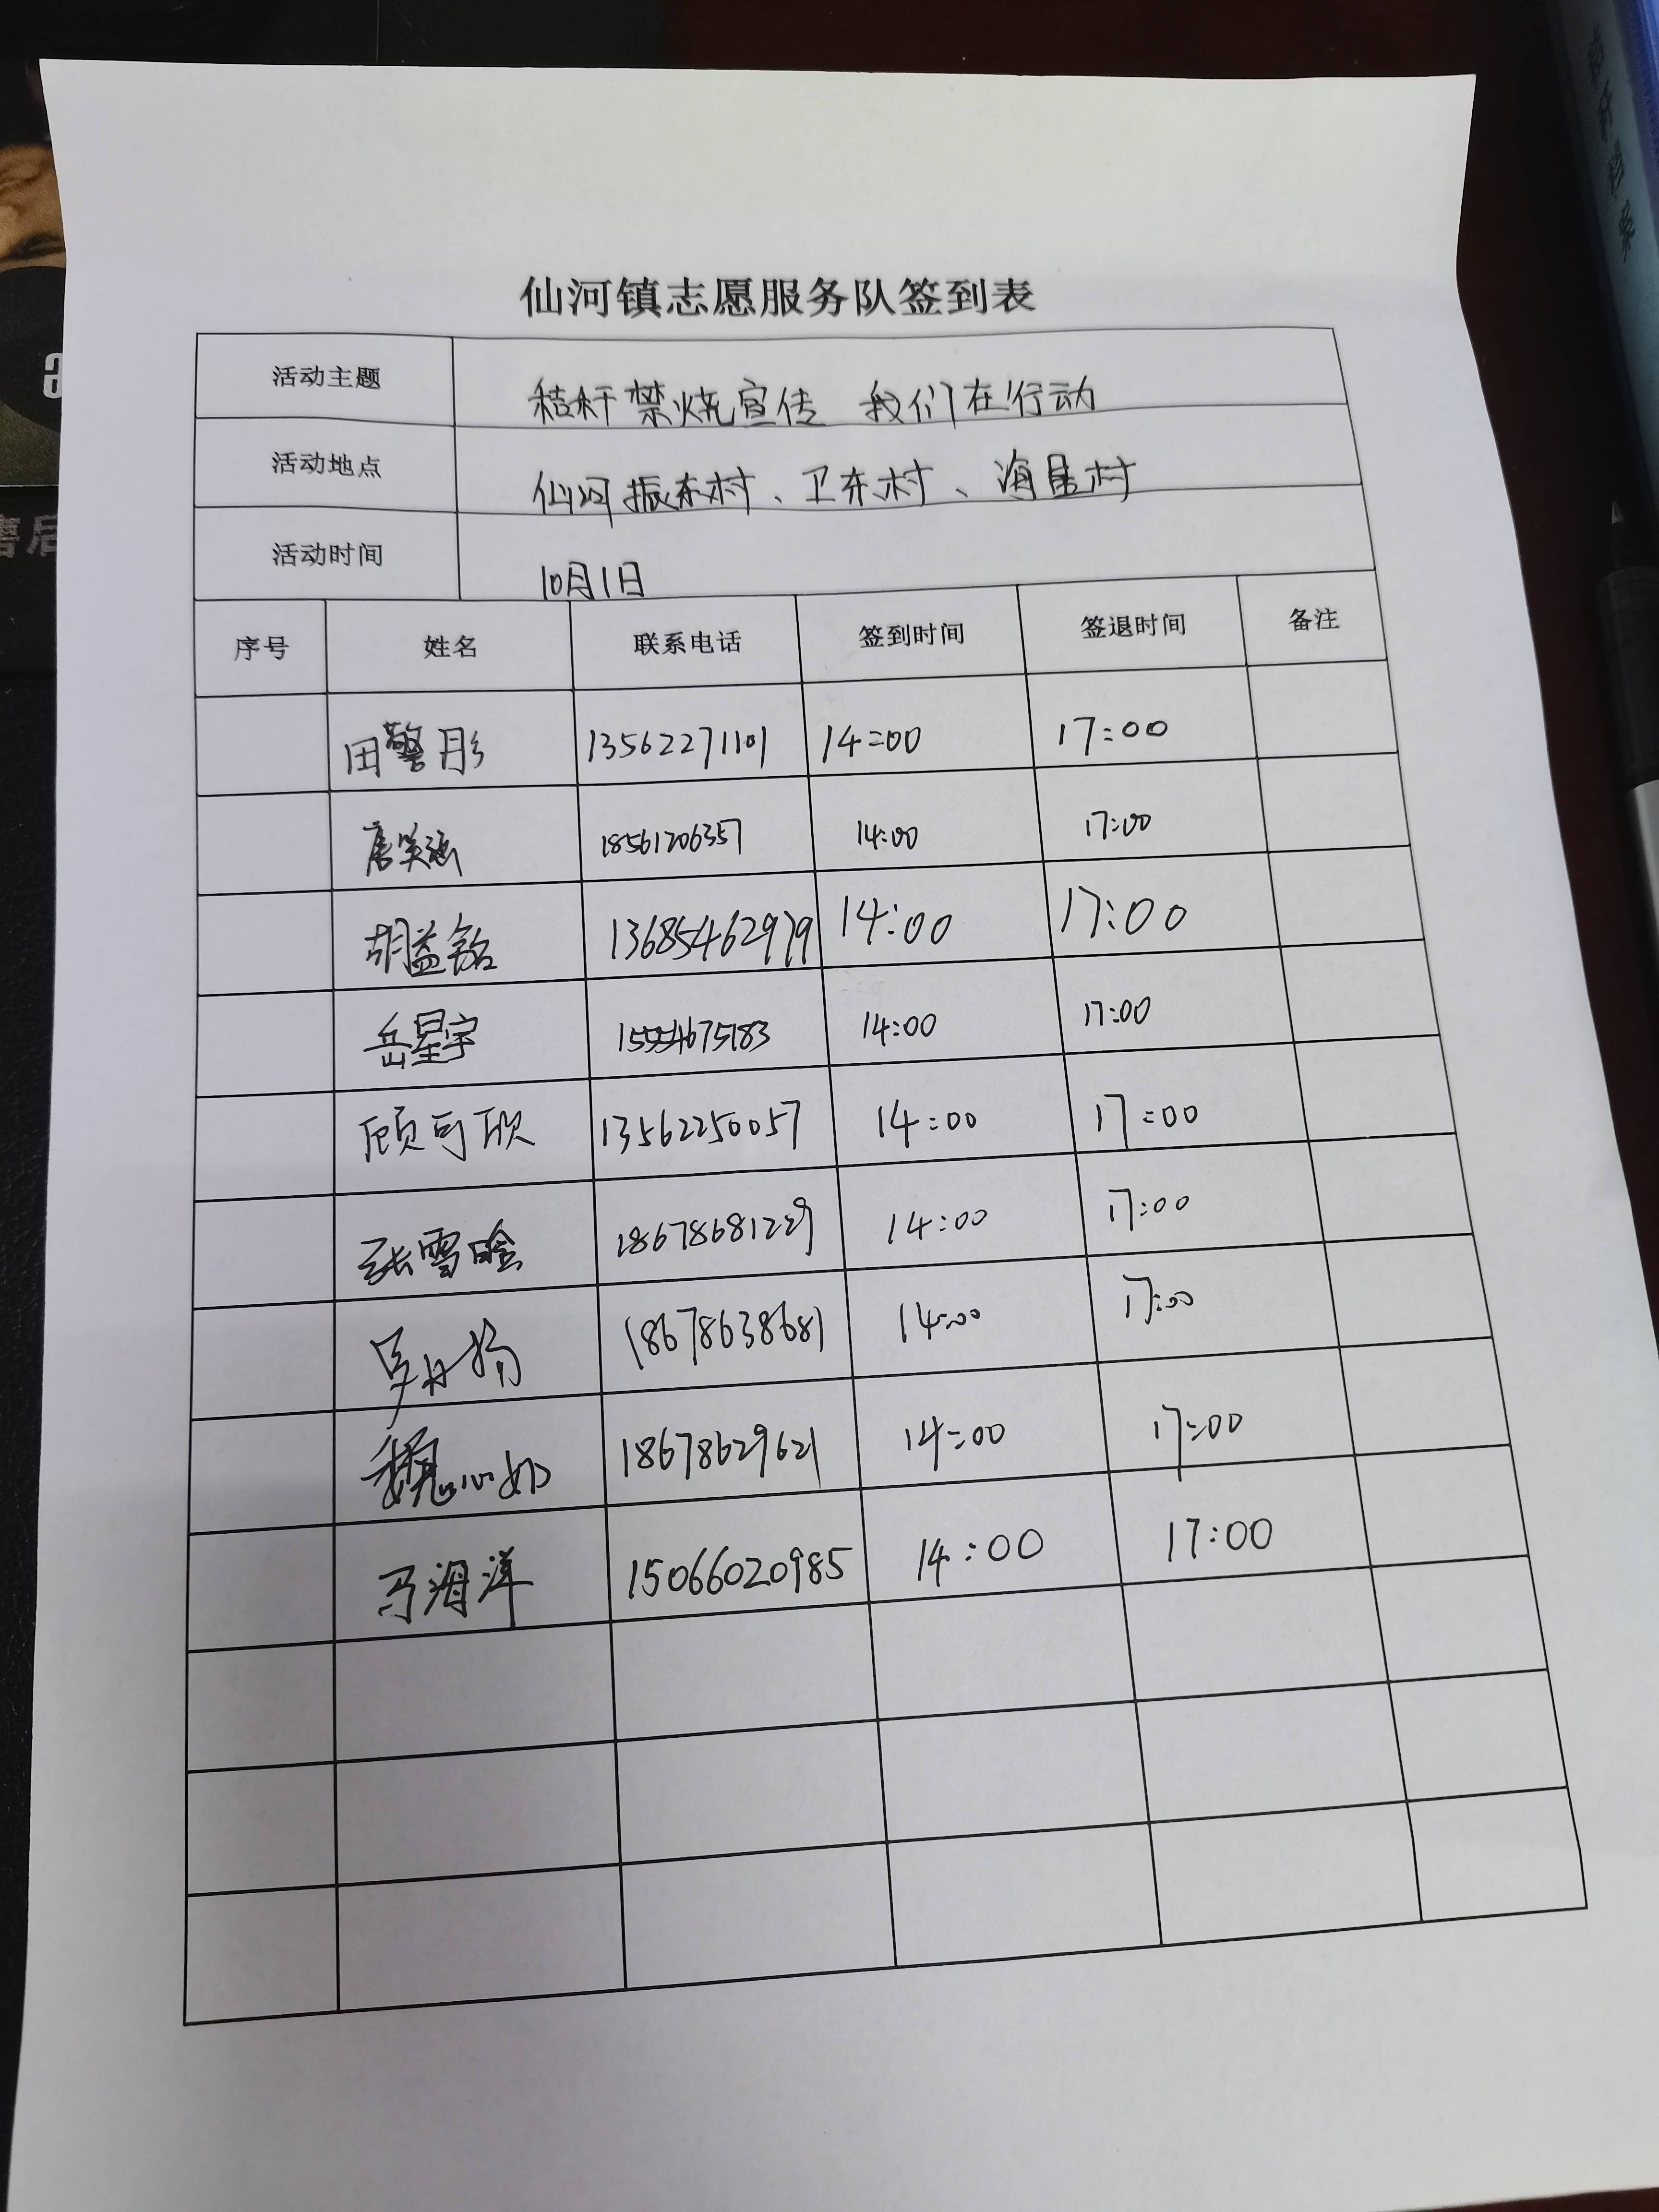 仙河镇志愿服务队签到表
活动主题 秸秆禁烧宣传 我们在行动
活动地点 仙河振东村、卫东村、海星村
活动时间 10月1日
序号 姓名 联系电话 签到时间 签退时间 备注
田警彤 13562271101 14:00 17:00
唐笑涵 18561206357 14:00 17:00
胡益铭 13685462979 14:00 17:00
岳星宇 15554675183 14:00 17:00
顾可欣 13562250057 14:00 17:00
张雪晗 18678681229 14:00 17:00
18678638681 14:00 17:00
魏心如 18678629621 14:00 17:00
马海洋 15066020985 14:00 17:00